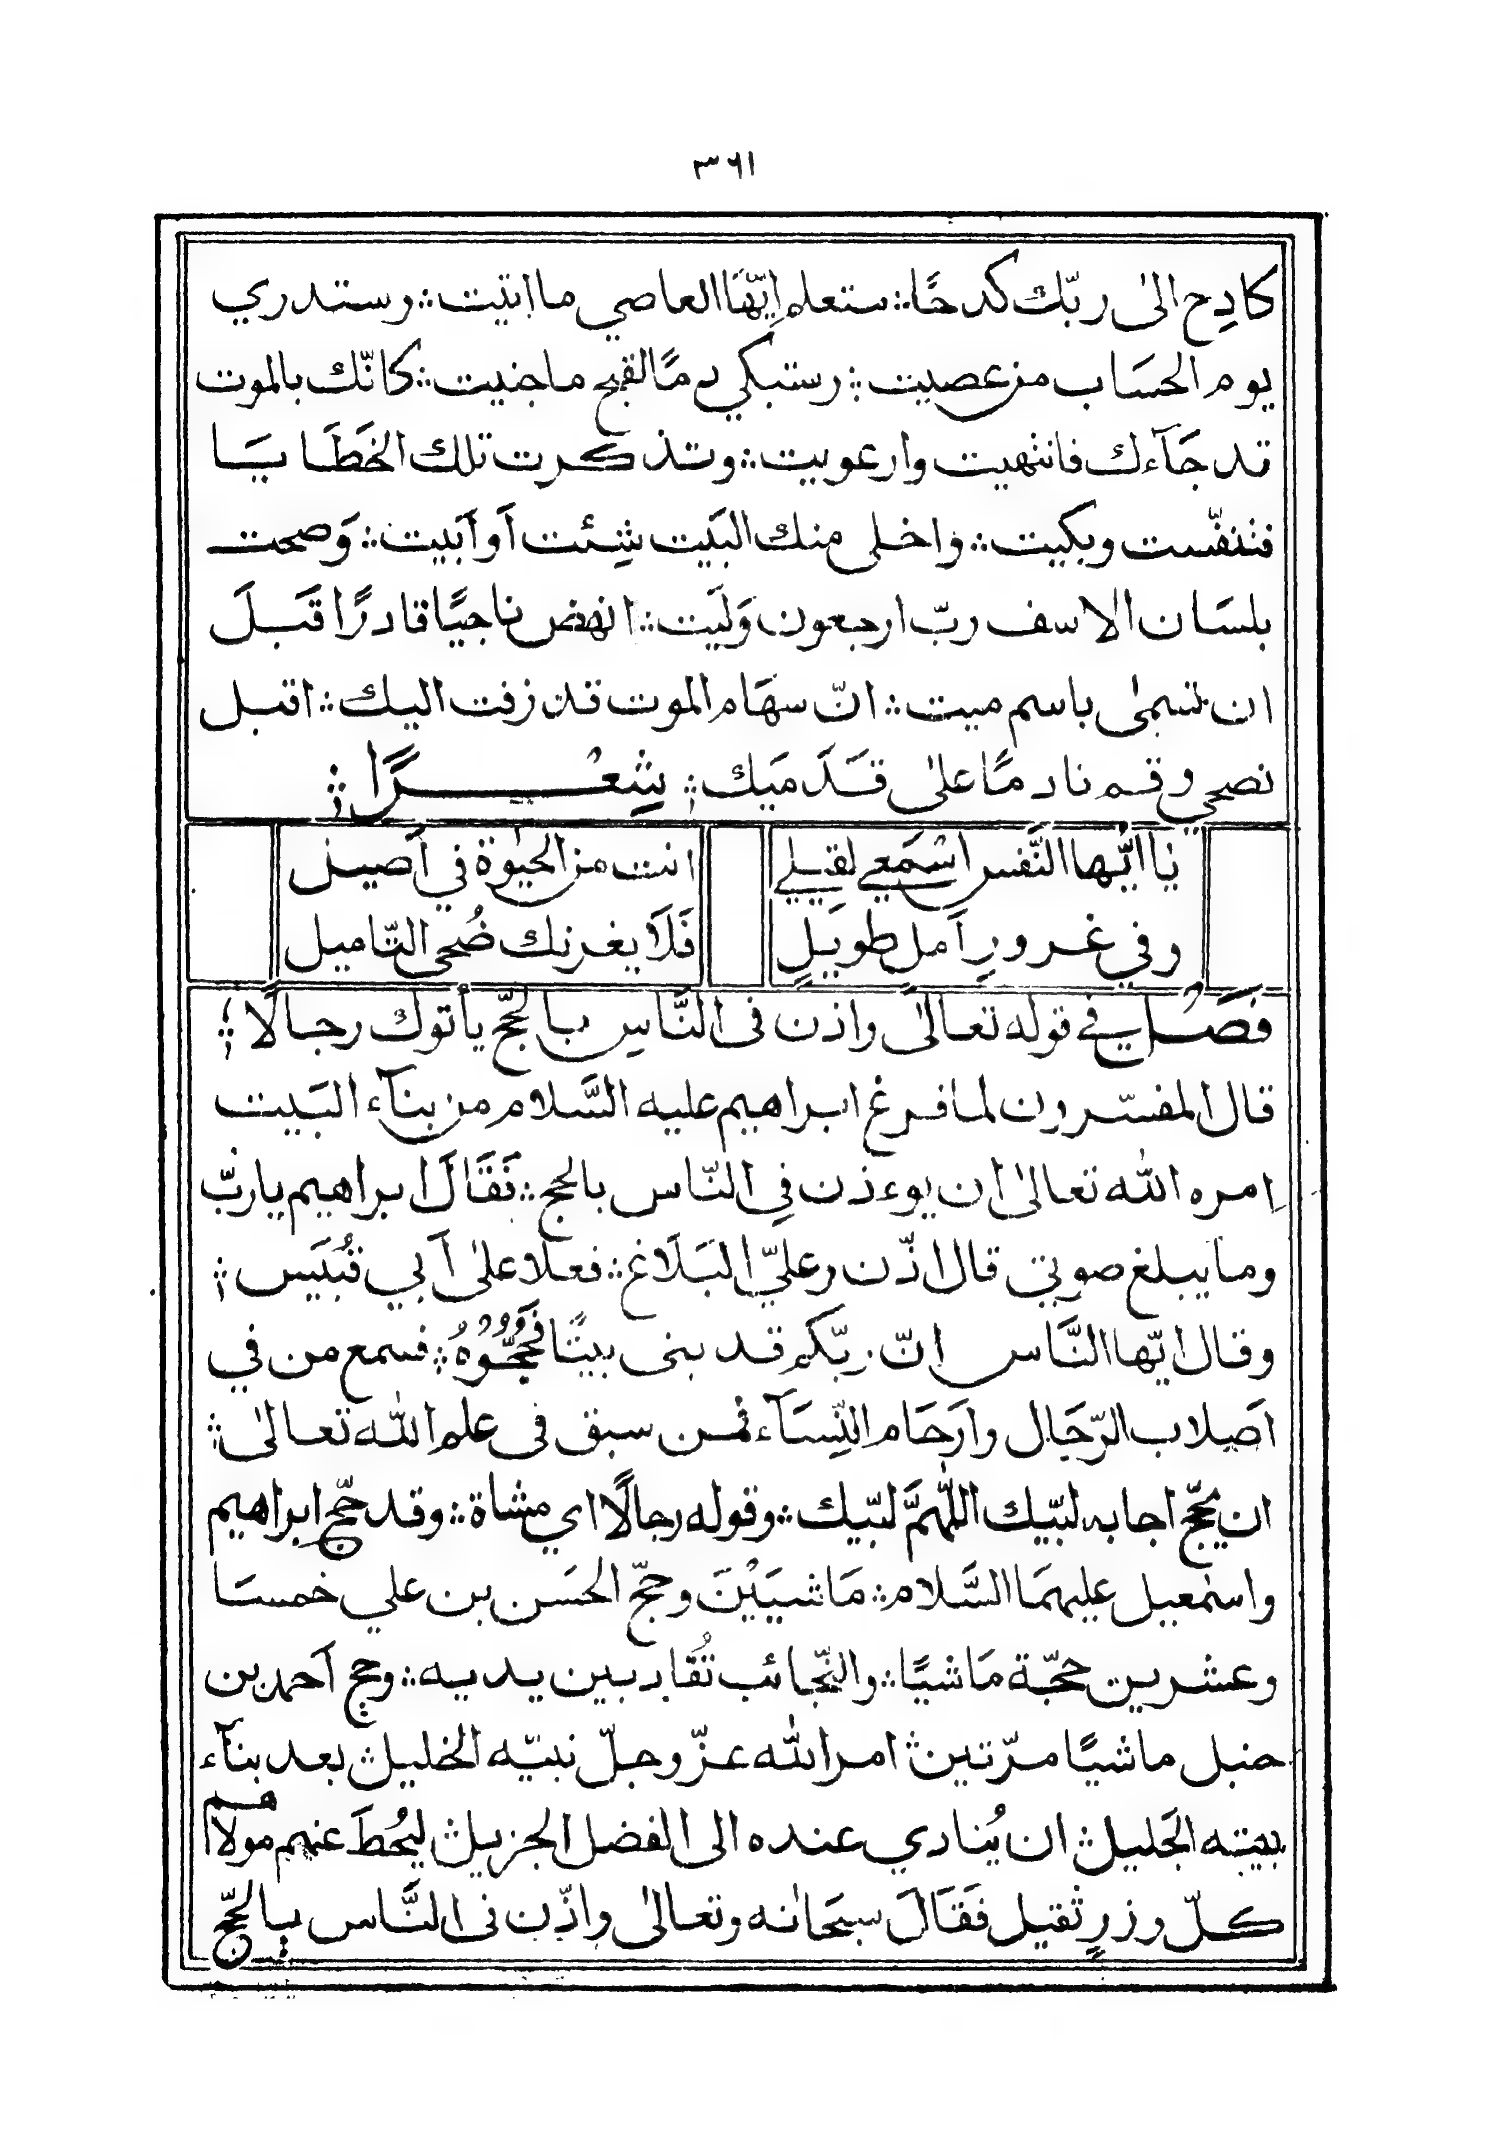 ١٦٣
كادح الى ربّك كدحًا ؞ ستعلم ايّها العاصي ما اتيت ؞ وستدري
يوم الحسَاب من عصيت ؞ وستبكي دمًا لقبح ما جنيت ؞ كانّك بالموت
قد جَآءك فانتهيت وارعويت ؞ وتذكرت تلك الخَطَايَا
فتنفّست وبكيت ؞ واخلى منك البَيت شِئت اَو اَبَيت ؞ وَصحت
بلسَان الاسف ربّ ارجعون وَلَيت ؞ انهض ناجيًا قادرًا قَبلَ
ان تسمى باسم ميت ؞ انّ سهَام الموت قد زفت اليك ؞ اقبل
نصحي وقم نادمًا على قَدَمَيك ؞ شِعْرًا ؞
يا ايّها النَّفس اسْمَعي لقيلي
انت من الحيٰوة في اَصيل
وفي غرورِ اَمل طويلِ
فَلَا يغرنك ضُحى التّاميل
فَصْل في قوله تعالىٰ واذن فى النَّاسِ بالحَجّ يأتوك رجالًا ؞
قال المفسّرون لما فرغ ابراهيم عليه السَّلام من بنآء البَيت
امره الله تعالىٰ ان يوءذن فِي النّاس بالحج ؞ فَقَالَ ابراهيم يا ربّ
وما يبلغ صوتي قال اذّن وعليّ البَلَاغ ؞ فعلا علىٰ اَبي قُبَيَس ؞
وقال ايّها النَّاس انّ ربّكم قد بنى بيتًا فَحُجُّوُهُ ؞ فسمع من في
اَصلاب الرّجَال واَرحَام النِّسَآء ممّن سبق فى علم الله تعالىٰ ؞
ان يحجّ اجابه لبّيك اللّٰهمَّ لبّيك ؞ وقوله رجالًا اي مشاة ؞ وقد حجّ ابراهيم
واسمٰعيل عليهمَا السَّلام ؞ مَاشيَيْنَ وحجّ الحسَن بن علي خمسَا
وعشرين حجّة مَاشيًا ؞ والنّجائب تُقَاد بين يديه ؞ وحج اَحمد بن
حنبل ماشيًا مرّتين ؞ امر الله عزّ وجلّ نبيّه الخليل ؞ بعد بنآء
بيته الجَليل ؞ ان يُنادي عنده الى الفضل الجزيل ؞ ليُحطَ عنهم مولاهم
كلّ وزرٍ ثقيل فَقَالَ سبحَانه وتعالىٰ واذّن فى النَّاس بالحَجّ